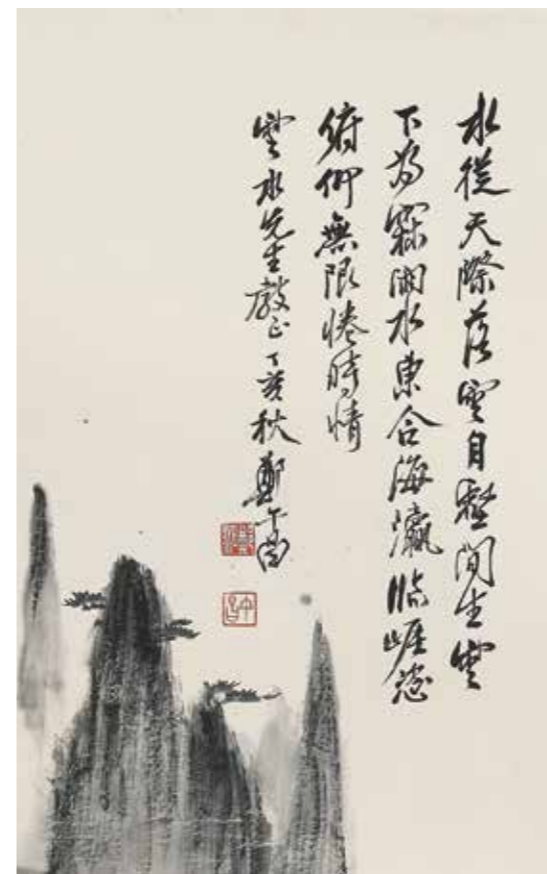 水從天際落雲自壑間生雲
下為霖開水東合海瀛臨崖
俯仰無限惓時情
雲水先生教正丁亥秋鄭午昌